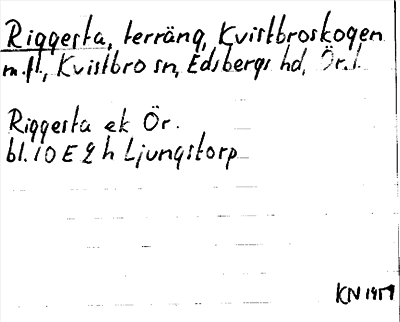 Riggesta, terräng, Kvistbroskogen
m.fl., Kvistbro sn, Edsbergs hd, Ör.l.
Riggesta ek Ör.
bl. 10 E 2 h Ljungstorp
KN